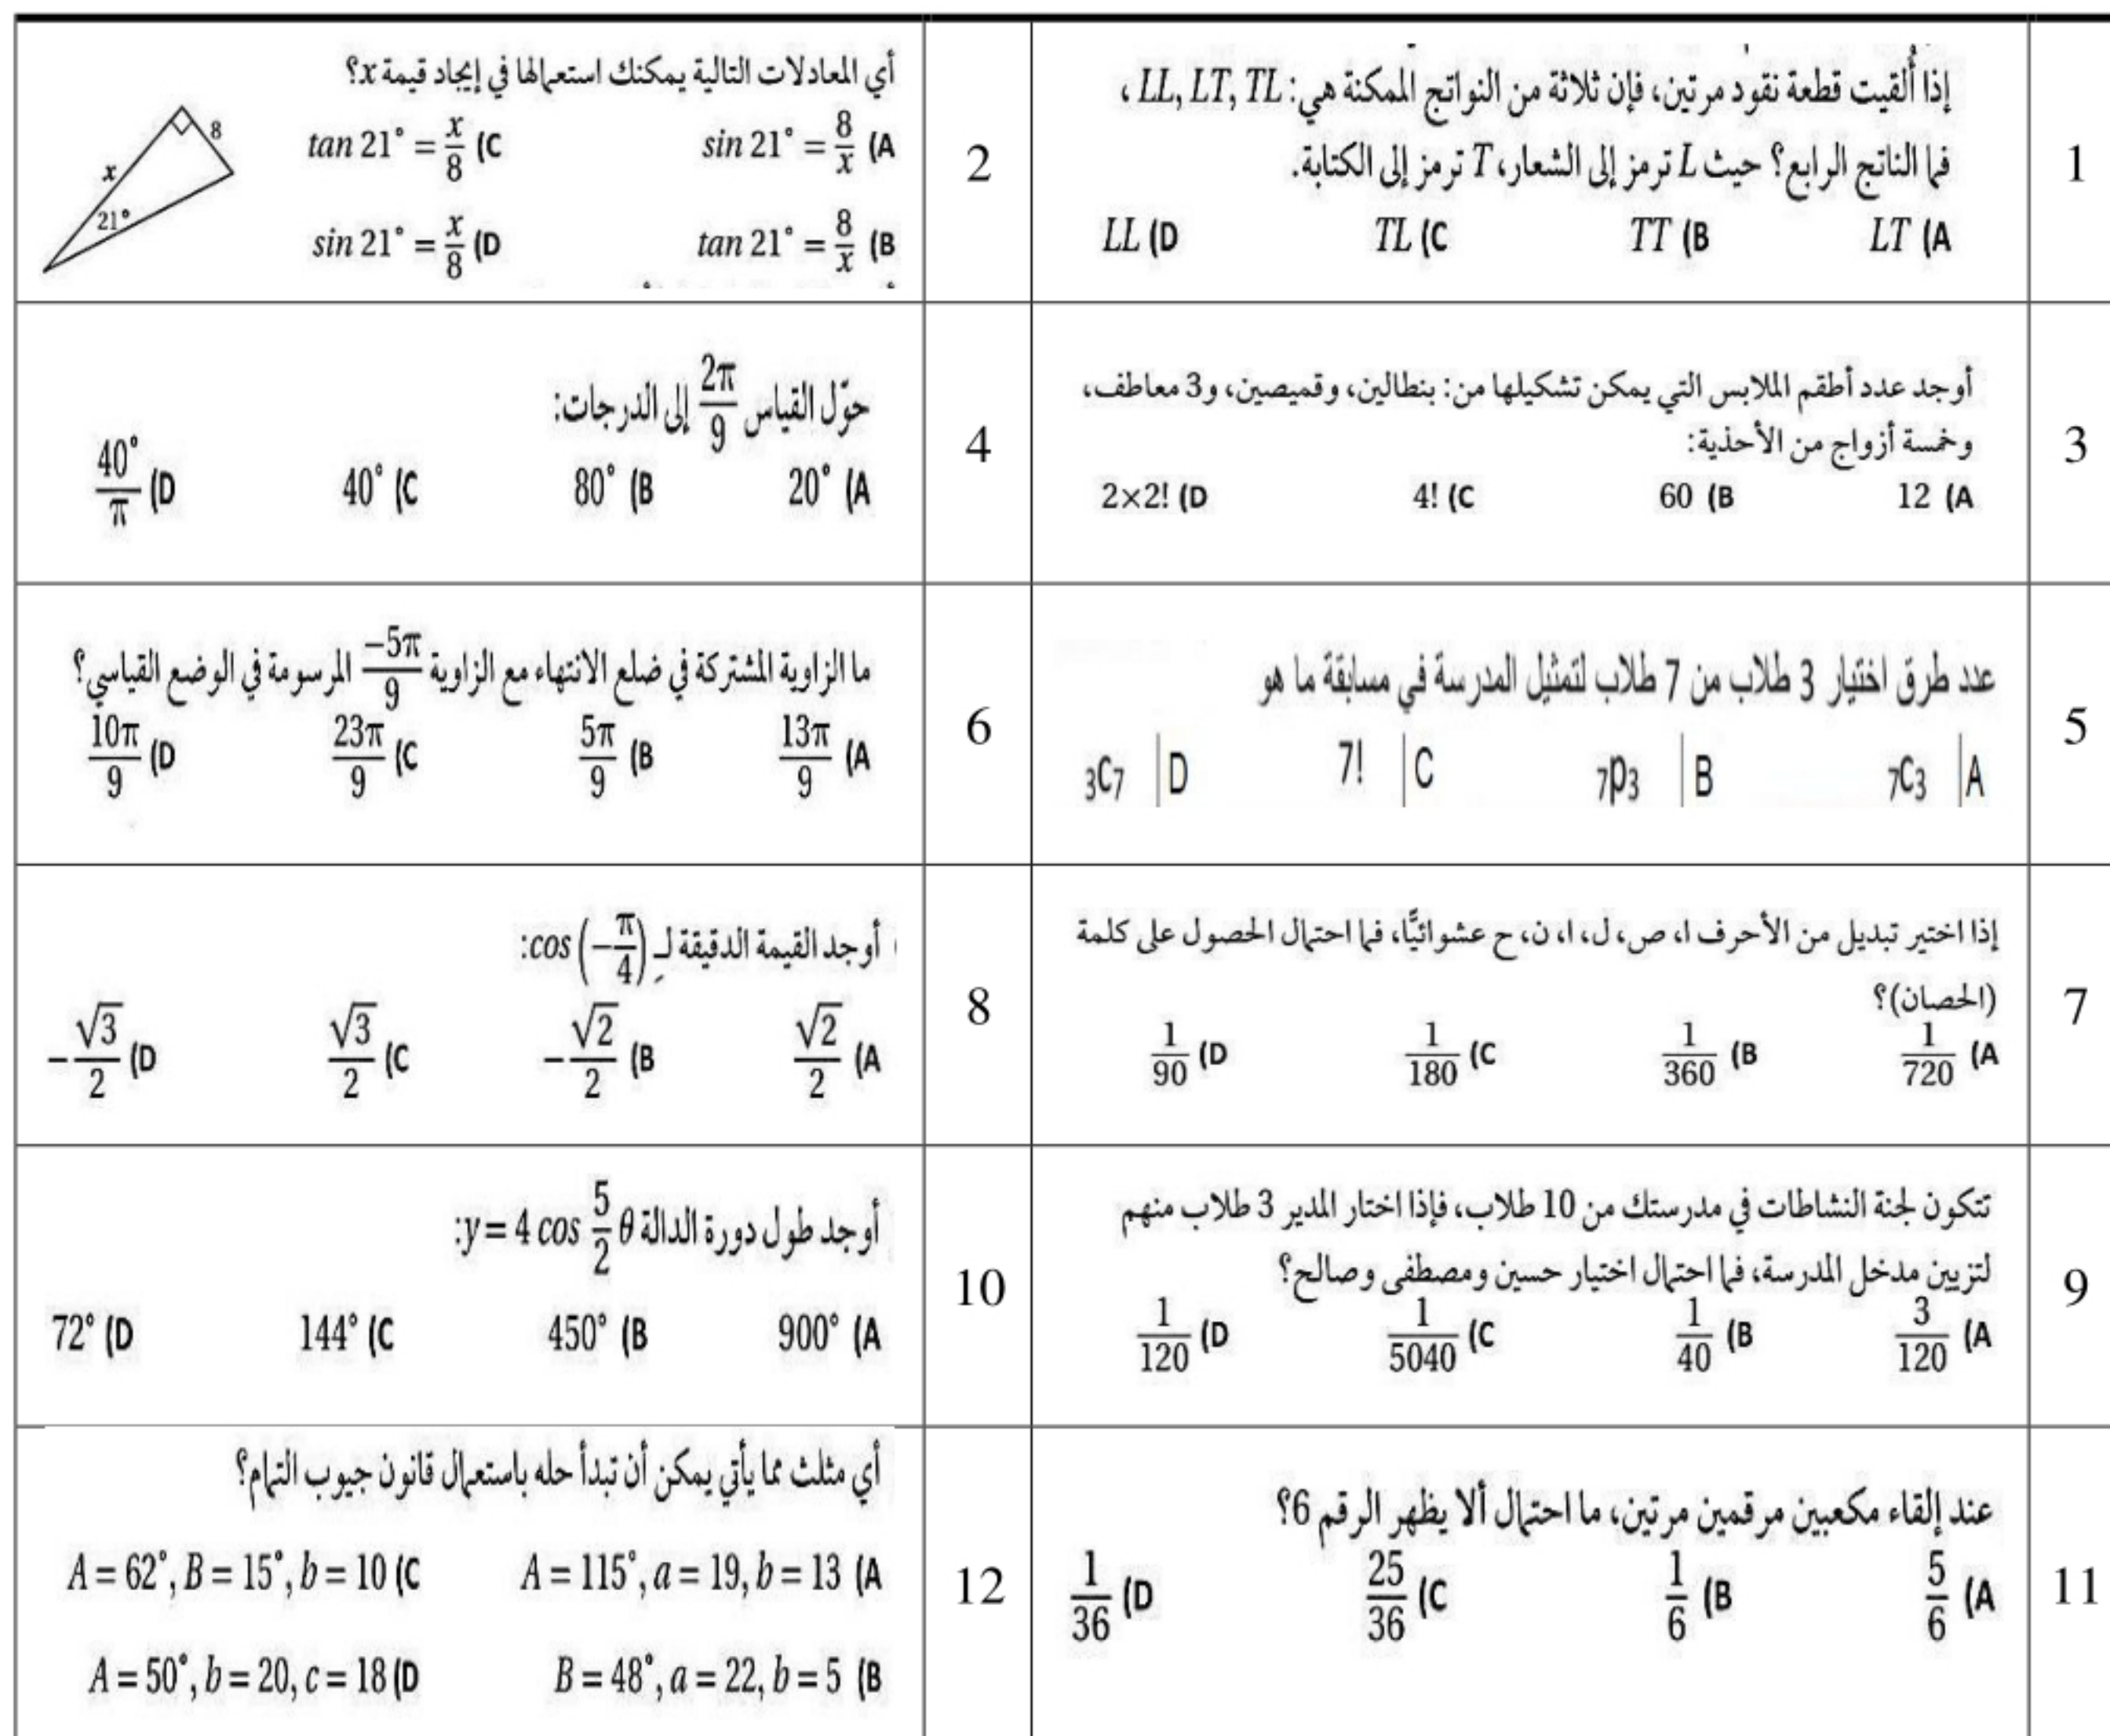 1
إذا أُلقيت قطعة نقود مرتين، فإن ثلاثة من النواتج الممكنة هي: LL, LT, TL ،
فما الناتج الرابع؟ حيث L ترمز إلى الشعار، T ترمز إلى الكتابة.
A) LT B) TT C) TL D) LL
2
أي المعادلات التالية يمكنك استعمالها في إيجاد قيمة x؟
A) sin 21° = 8/x C) tan 21° = x/8
B) tan 21° = 8/x D) sin 21° = x/8
8
x
21°
3
أوجد عدد أطقم الملابس التي يمكن تشكيلها من: بنطالين، وقميصين، و3 معاطف،
وخمسة أزواج من الأحذية:
A) 12 B) 60 C) 4! D) 2×2!
4
حوّل القياس 2π/9 إلى الدرجات:
A) 20° B) 80° C) 40° D) 40°/π
5
عدد طرق اختيار 3 طلاب من 7 طلاب لتمثيل المدرسة في مسابقة ما هو
A| ₇C₃ B| ₇p₃ C| 7! D| ₃C₇
6
ما الزاوية المشتركة في ضلع الانتهاء مع الزاوية −5π/9 المرسومة في الوضع القياسي؟
A) 13π/9 B) 5π/9 C) 23π/9 D) 10π/9
7
إذا اختير تبديل من الأحرف ا، ص، ل، ا، ن، ح عشوائيًّا، فما احتمال الحصول على كلمة
(الحصان)؟
A) 1/720 B) 1/360 C) 1/180 D) 1/90
8
أوجد القيمة الدقيقة لـ cos (−π/4):
A) √2/2 B) −√2/2 C) √3/2 D) −√3/2
9
تتكون لجنة النشاطات في مدرستك من 10 طلاب، فإذا اختار المدير 3 طلاب منهم
لتزيين مدخل المدرسة، فما احتمال اختيار حسين ومصطفى وصالح؟
A) 3/120 B) 1/40 C) 1/5040 D) 1/120
10
أوجد طول دورة الدالة y = 4 cos 5/2 θ:
A) 900° B) 450° C) 144° D) 72°
11
عند إلقاء مكعبين مرقمين مرتين، ما احتمال ألا يظهر الرقم 6؟
A) 5/6 B) 1/6 C) 25/36 D) 1/36
12
أي مثلث مما يأتي يمكن أن تبدأ حله باستعمال قانون جيوب التمام؟
A) A = 115°, a = 19, b = 13 C) A = 62°, B = 15°, b = 10
B) B = 48°, a = 22, b = 5 D) A = 50°, b = 20, c = 18